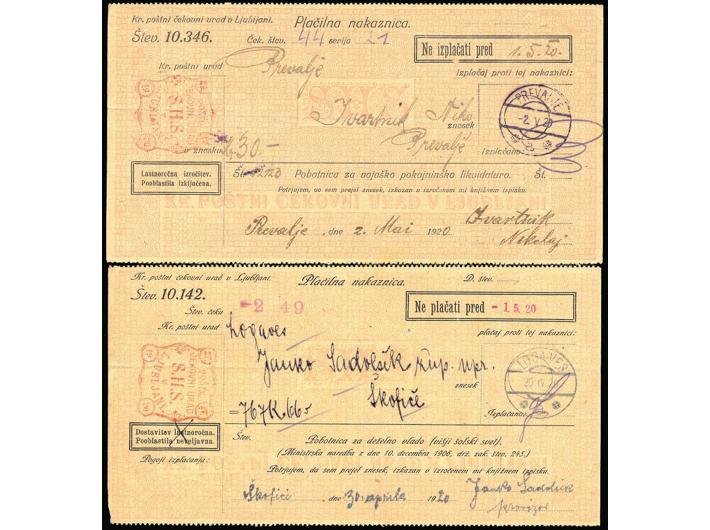 Kr. poštni čekovni urad v Ljubljani. Plačilna nakaznica.
Štev. 10.346. Ček. štev. 44 serija 21
Ne izplačati pred 1.5.20.
Kr. poštni urad Prevalje izplačaj proti tej nakaznici:
S.H.S.
LJUBLJANA
PREVALJE
-2. V. 20
Ivartnik Niko
znesek Prevalje
v znesku K 30- Izplačano:
Lastnoročna izročitev.
Pooblastila izključena.
Št. Pobotnica za vojaško pokojninsko likvidaturo. Št.
Potrjujem, da sem prejel znesek, izkazan v izročenem mi knjižnem izpisku.
KR. POŠTNI ČEKOVNI URAD V LJUBLJANI
Prevalje, dne 2. Mai 1920 Ivartnik
Nikolaj
Kr. poštni čekovni urad v Ljubljani. Plačilna nakaznica. D. štev.
Štev. 10.142.
Štev. čeku -2 49
Ne plačati pred -1.5.20
Kr. poštni urad Logaves plačaj proti tej nakaznici:
S.H.S.
LJUBLJANA
Janko kup. upr.
znesek
Škofiče
=767K.66 Izplačano:
Dostavitev lastnoročna.
Pooblastila neveljavna.
Štev. Pobotnica za deželno vlado (višji šolski svet).
(Ministrska naredba z dne 10. decembra 1906, drž. zak. štev. 245.)
Pogoji izplačanja:
Potrjujem, da sem prejel znesek, izkazan v izročenem mi knjižnem izpisku.
Škofiči dne 30. aprila 1920 Janko